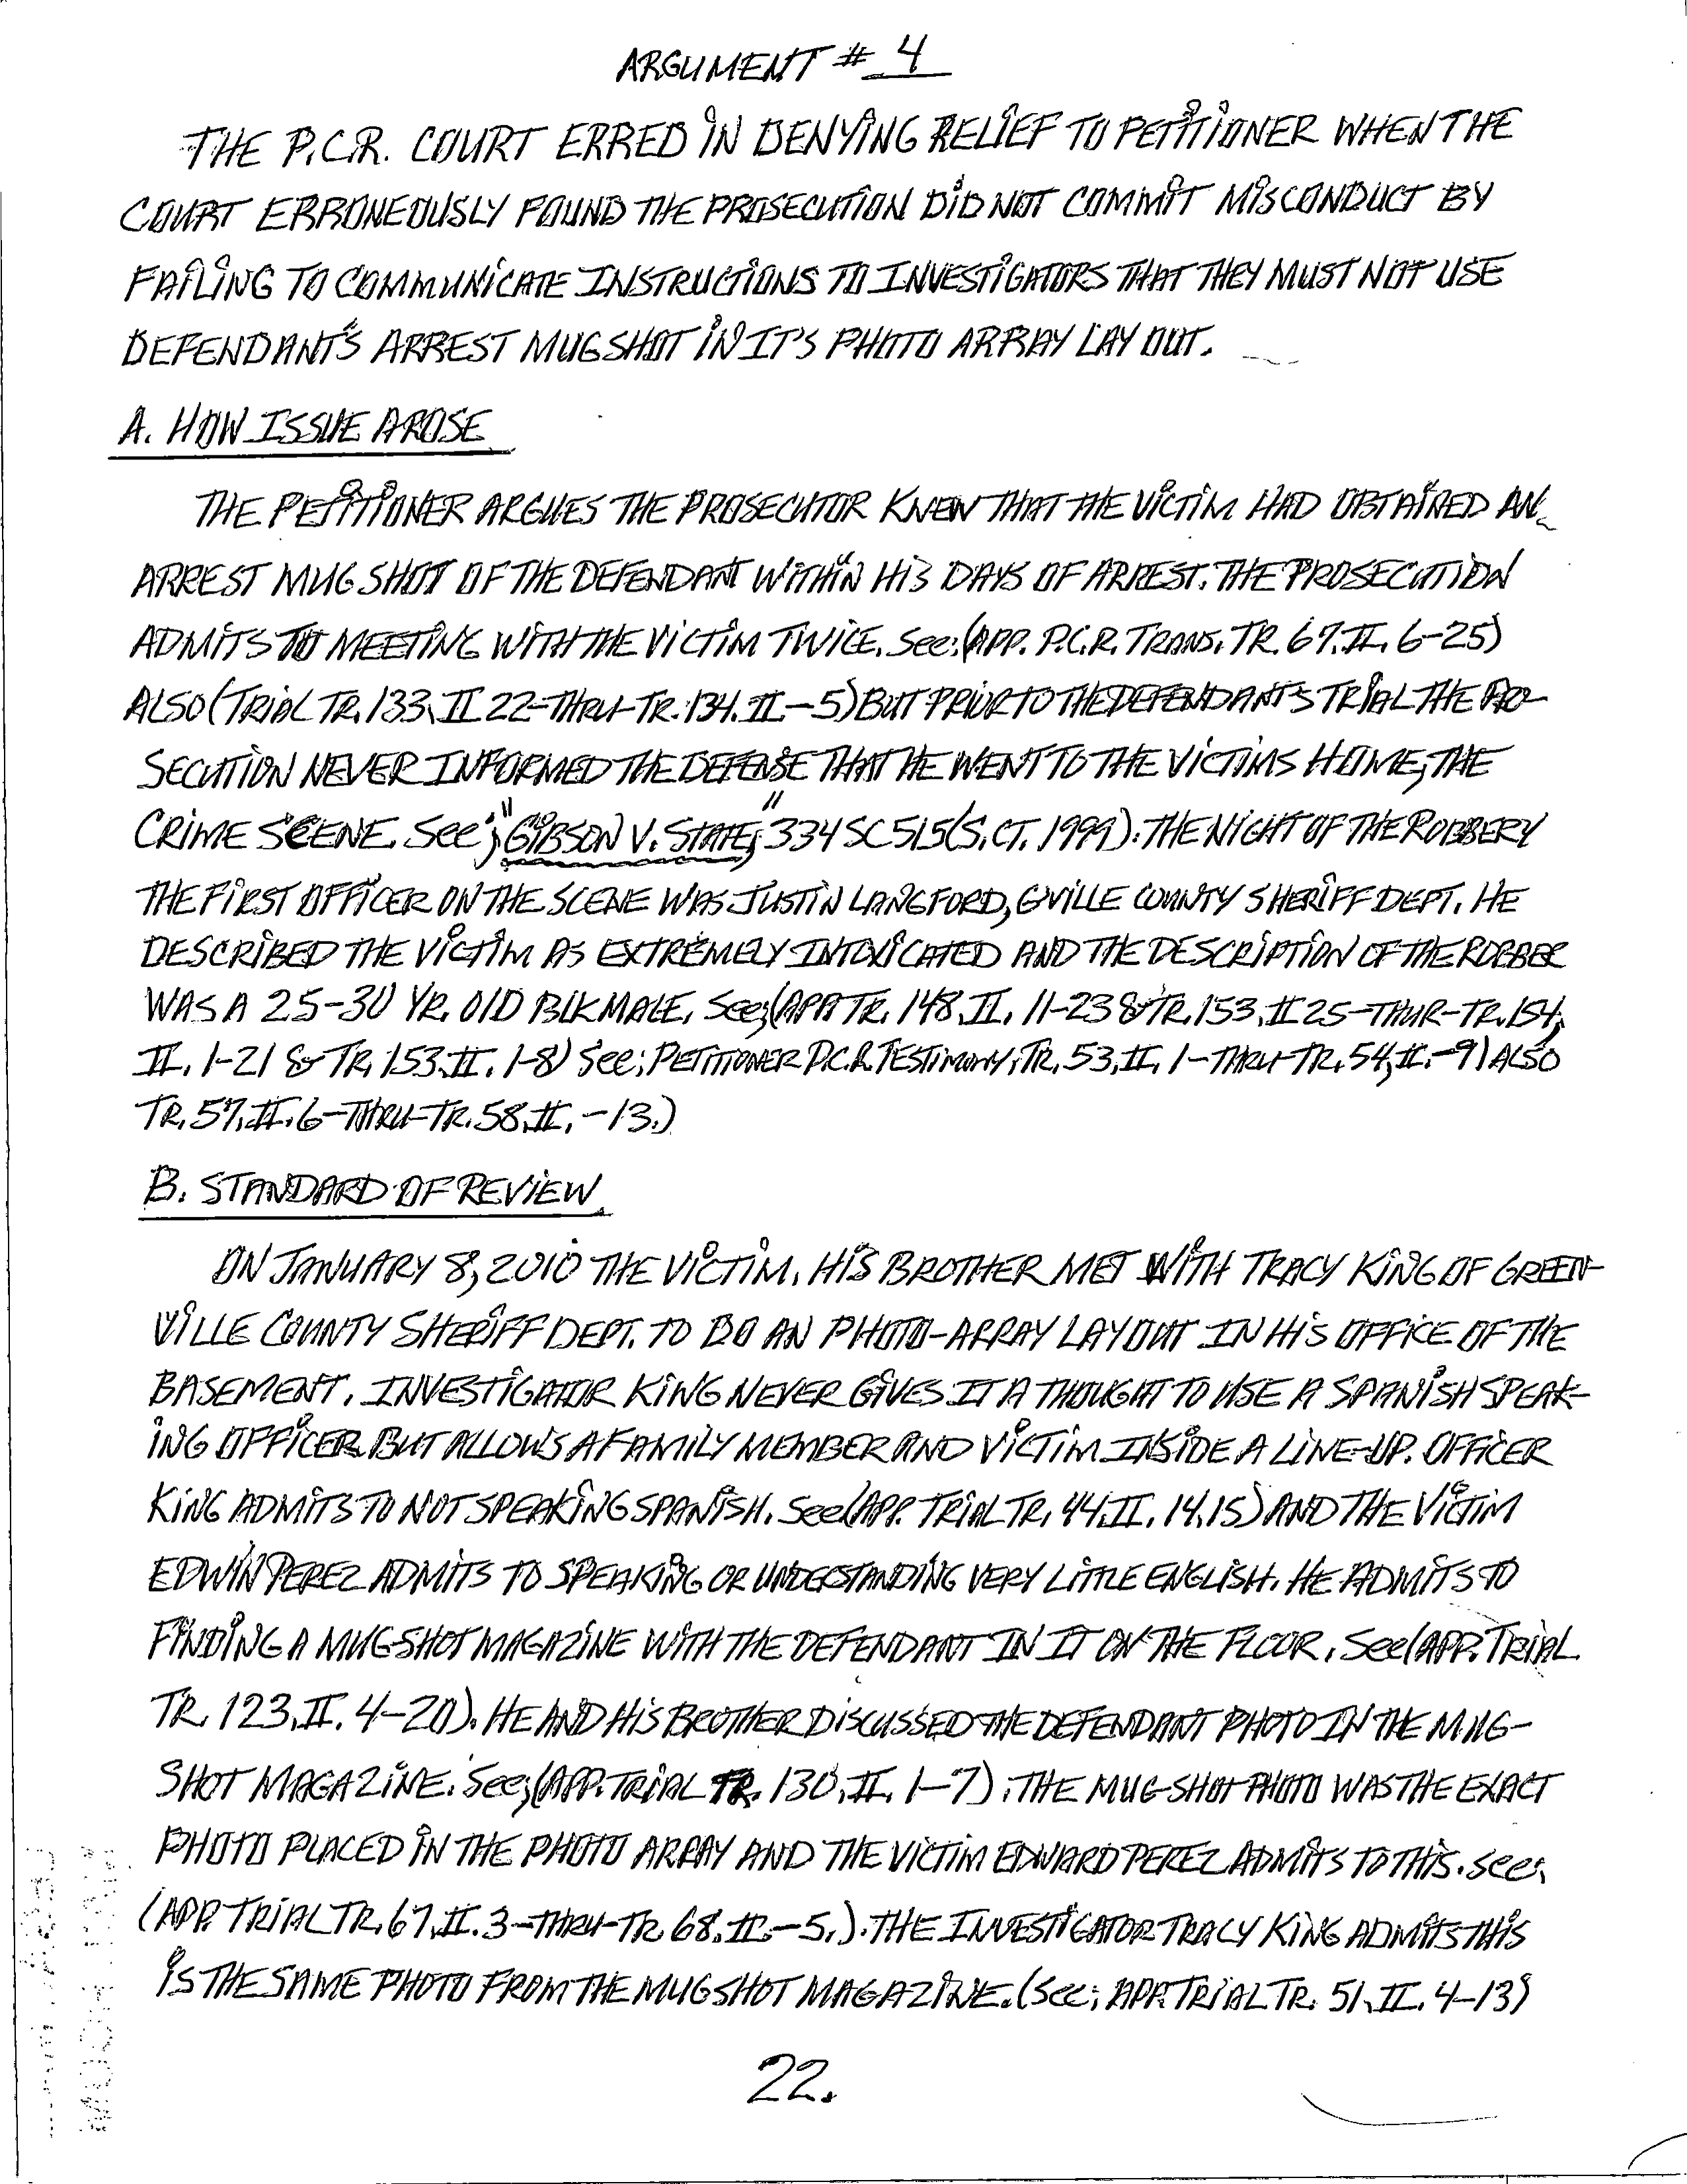 ARGUMENT # 4
THE P.C.R. COURT ERRED IN DENYING RELIEF TO PETITIONER WHEN THE
COURT ERRONEOUSLY FOUND THE PROSECUTION DID NOT COMMIT MISCONDUCT BY
FAILING TO COMMUNICATE INSTRUCTIONS TO INVESTIGATORS THAT THEY MUST NOT USE
DEFENDANT'S ARREST MUGSHOT IN IT'S PHOTO ARRAY LAY OUT.
A. HOW ISSUE AROSE
THE PETITIONER ARGUES THE PROSECUTOR KNEW THAT THE VICTIM HAD OBTAINED AN
ARREST MUG SHOT OF THE DEFENDANT WITHIN HIS DAYS OF ARREST. THE PROSECUTION
ADMITS TO MEETING WITH THE VICTIM TWICE. See; (APP. P.C.R. TRANS. TR. 67. II. 6-25)
ALSO (TRIAL TR. 133. II 22-THRU-TR. 134. II.-5) BUT PRIOR TO THE DEFENDANT'S TRIAL THE PRO-
SECUTION NEVER INFORMED THE DEFENSE THAT HE WENT TO THE VICTIMS HOME, THE
CRIME SCENE. See; "GIBSON V. STATE," 334 SC 515 (S.CT. 1999). THE NIGHT OF THE ROBBERY
THE FIRST OFFICER ON THE SCENE WAS JUSTIN LANGFORD, GVILLE COUNTY SHERIFF DEPT. HE
DESCRIBED THE VICTIM AS EXTREMELY INTOXICATED AND THE DESCRIPTION OF THE ROBBER
WAS A 25-30 YR. OLD BLK MALE. See; (APP. TR. 148. II. 11-23 & TR. 153. II 25-THUR-TR. 154,
II. 1-21 & TR. 153. II. 1-8) See; PETITIONER P.C.R. TESTIMONY; TR. 53, II. 1-THRU-TR. 54, II.-9) ALSO
TR. 57. II. 6-THRU-TR. 58. II. -13.)
B. STANDARD OF REVIEW
ON JANUARY 8, 2010 THE VICTIM. HIS BROTHER MET WITH TRACY KING OF GREEN-
VILLE COUNTY SHERIFF DEPT. TO DO AN PHOTO-ARRAY LAYOUT IN HIS OFFICE OF THE
BASEMENT. INVESTIGATOR KING NEVER GIVES IT A THOUGHT TO USE A SPANISH SPEAK-
ING OFFICER BUT ALLOWS A FAMILY MEMBER AND VICTIM INSIDE A LINE-UP. OFFICER
KING ADMITS TO NOT SPEAKING SPANISH. See (APP. TRIAL TR. 44. II. 14.15) AND THE VICTIM
EDWIN PEREZ ADMITS TO SPEAKING OR UNDERSTANDING VERY LITTLE ENGLISH. HE ADMITS TO
FINDING A MUGSHOT MAGAZINE WITH THE DEFENDANT IN IT ON THE FLOOR. See (APP. TRIAL
TR. 123. II. 4-20). HE AND HIS BROTHER DISCUSSED THE DEFENDANT PHOTO IN THE MUG-
SHOT MAGAZINE. See; (APP. TRIAL TR. 130. II. 1-7). THE MUG-SHOT PHOTO WAS THE EXACT
PHOTO PLACED IN THE PHOTO ARRAY AND THE VICTIM EDWARD PEREZ ADMITS TO THIS. see;
(APP. TRIAL TR. 67. II. 3-THRU-TR 68. II.-5.). THE INVESTIGATOR TRACY KING ADMITS THIS
IS THE SAME PHOTO FROM THE MUGSHOT MAGAZINE. (See; APP. TRIAL TR. 51. II. 4-13)
22.